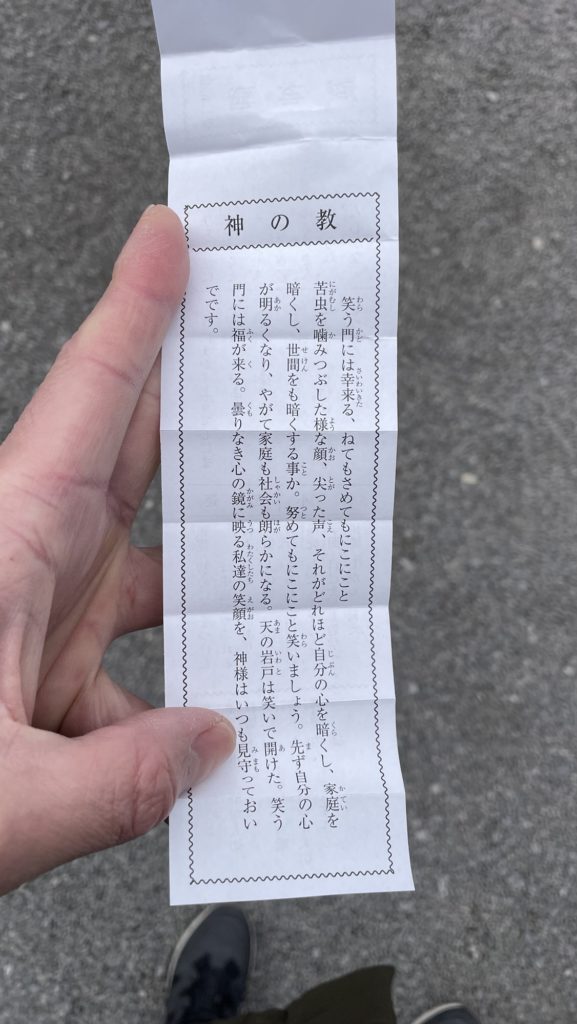 神の教
笑う門には幸来る、ねてもさめてもにこにこと
苦虫を噛みつぶした様な顔、尖った声、それがどれほど自分の心を暗くし、家庭を
暗くし、世間をも暗くする事か。努めてもにこにこと笑いましょう。先ず自分の心
が明るくなり、やがて家庭も社会も朗らかになる。天の岩戸は笑いで開けた。笑う
門には福が来る。曇りなき心の鏡に映る私達の笑顔を、神様はいつも見守っておい
でです。